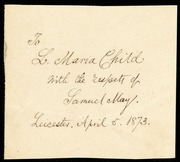 To
L. Maria Child
with the respects of
Samuel May,
Leicester, April 5. 1873.